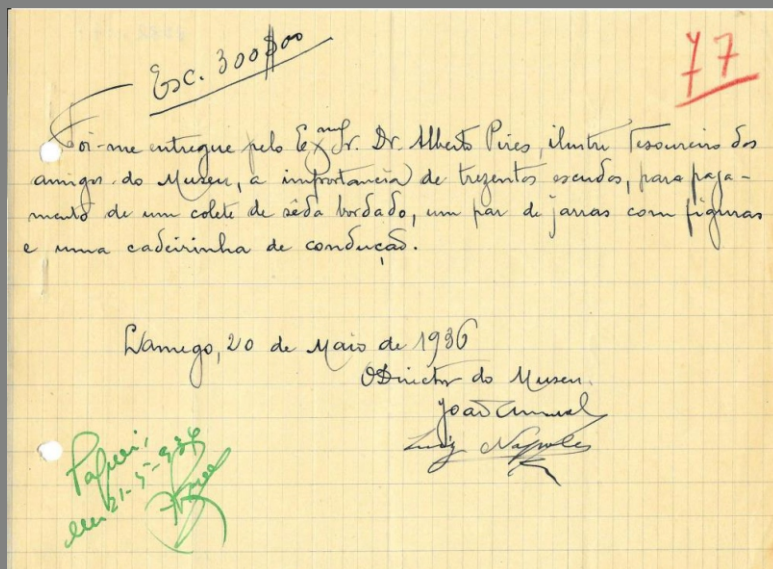 Esc. 300$00
77
Foi-me entregue pelo Ex.mo Sr. Dr. Alberto Pires, ilustre Tesoureiro dos
amigos do Museu, a importancia de trezentos escudos, para paga-
mento de um colete de sêda bordado, um par de jarras com figuras
e uma cadeirinha de condução.
Lamego, 20 de Maio de 1936
O Director do Museu.
João Amaral
Luiz Napoles
Paguei,
em 21-5-936